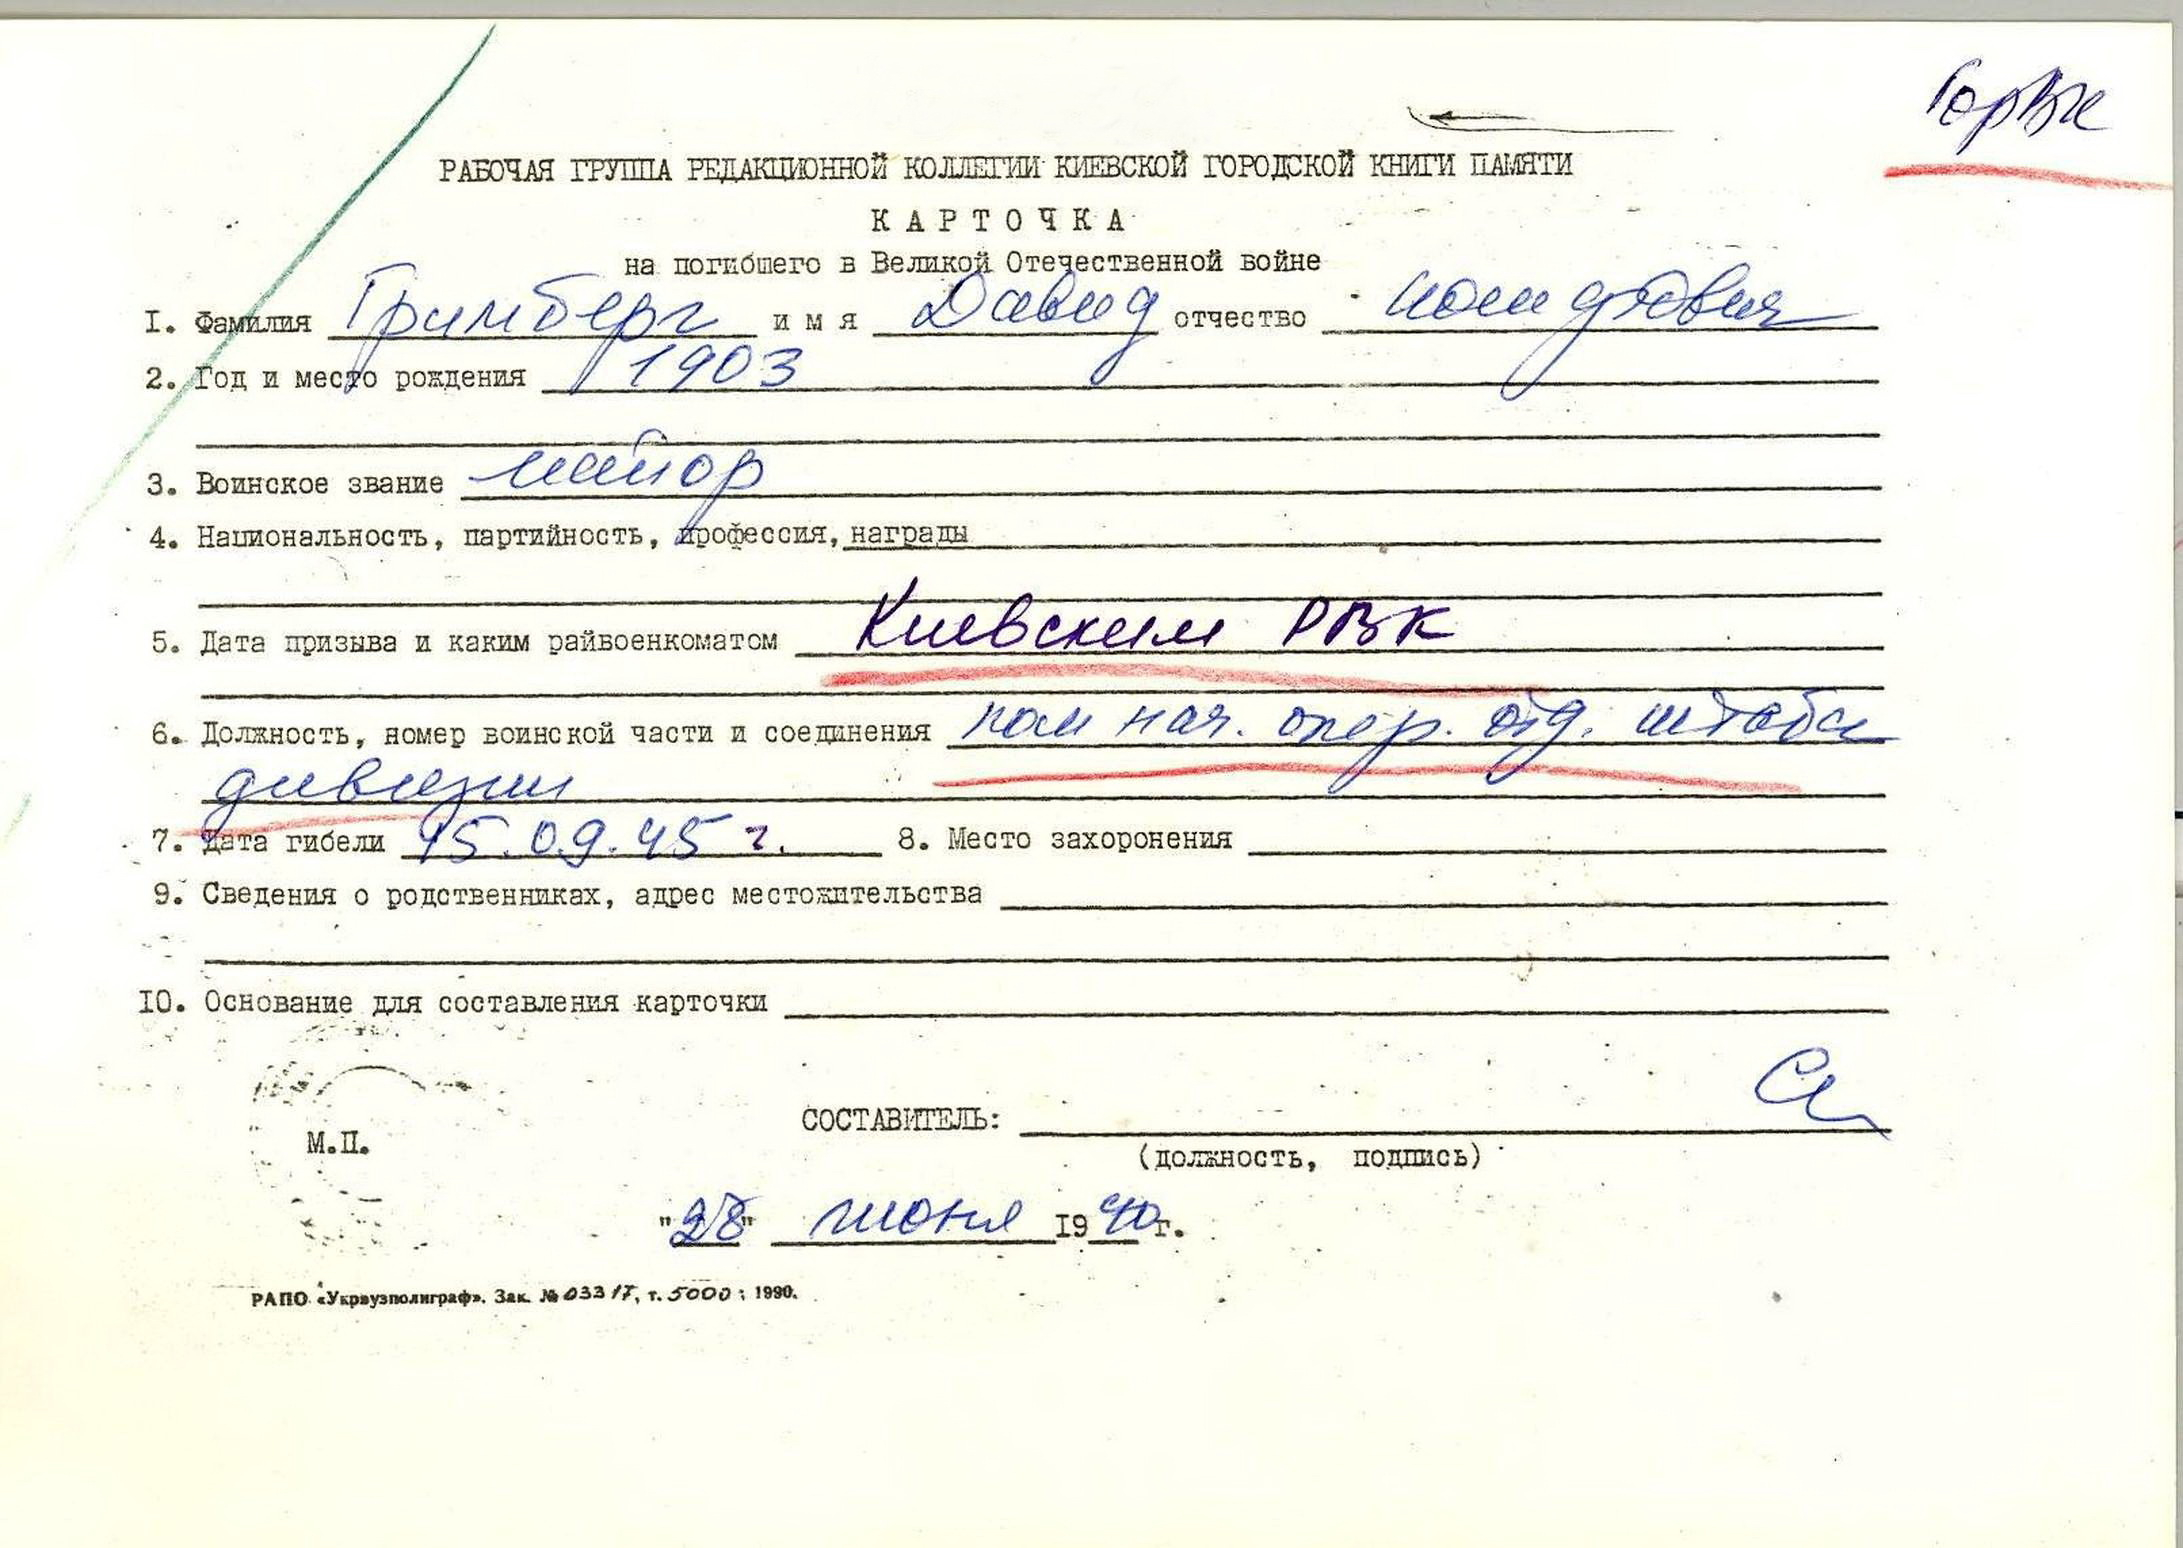 ГорВК
РАБОЧАЯ ГРУППА РЕДАКЦИОННОЙ КОЛЛЕГИИ КИЕВСКОЙ ГОРОДСКОЙ КНИГИ ПАМЯТИ
КАРТОЧКА
на погибшего в Великой Отечественной войне
1. Фамилия Гримберг имя Давид отчество
2. Год и место рождения 1903
3. Воинское звание майор
4. Национальность, партийность, профессия, награды
5. Дата призыва и каким райвоенкоматом Киевским РВК
6. Должность, номер воинской части и соединения пом нач. опер. отд. штаба
дивизии
7. Дата гибели 15.09.45 г. 8. Место захоронения
9. Сведения о родственниках, адрес местожительства
10. Основание для составления карточки
СОСТАВИТЕЛЬ:
М.П.
(должность, подпись)
"28" июня 1990г.
РАПО «Укрвузполиграф». Зак. № 03317, т. 5000; 1990.